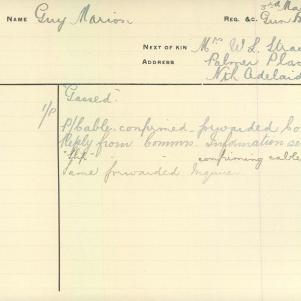 NAME Guy Marion REG. &C. 3rd
NEXT OF KIN Mrs W. L.
ADDRESS Palmer Plac
Nth Adelaid
Gassed.
P/Cable confirmed forwarded
Reply from Comms. Information se
" " confirming cable
same forwarded Inquirer